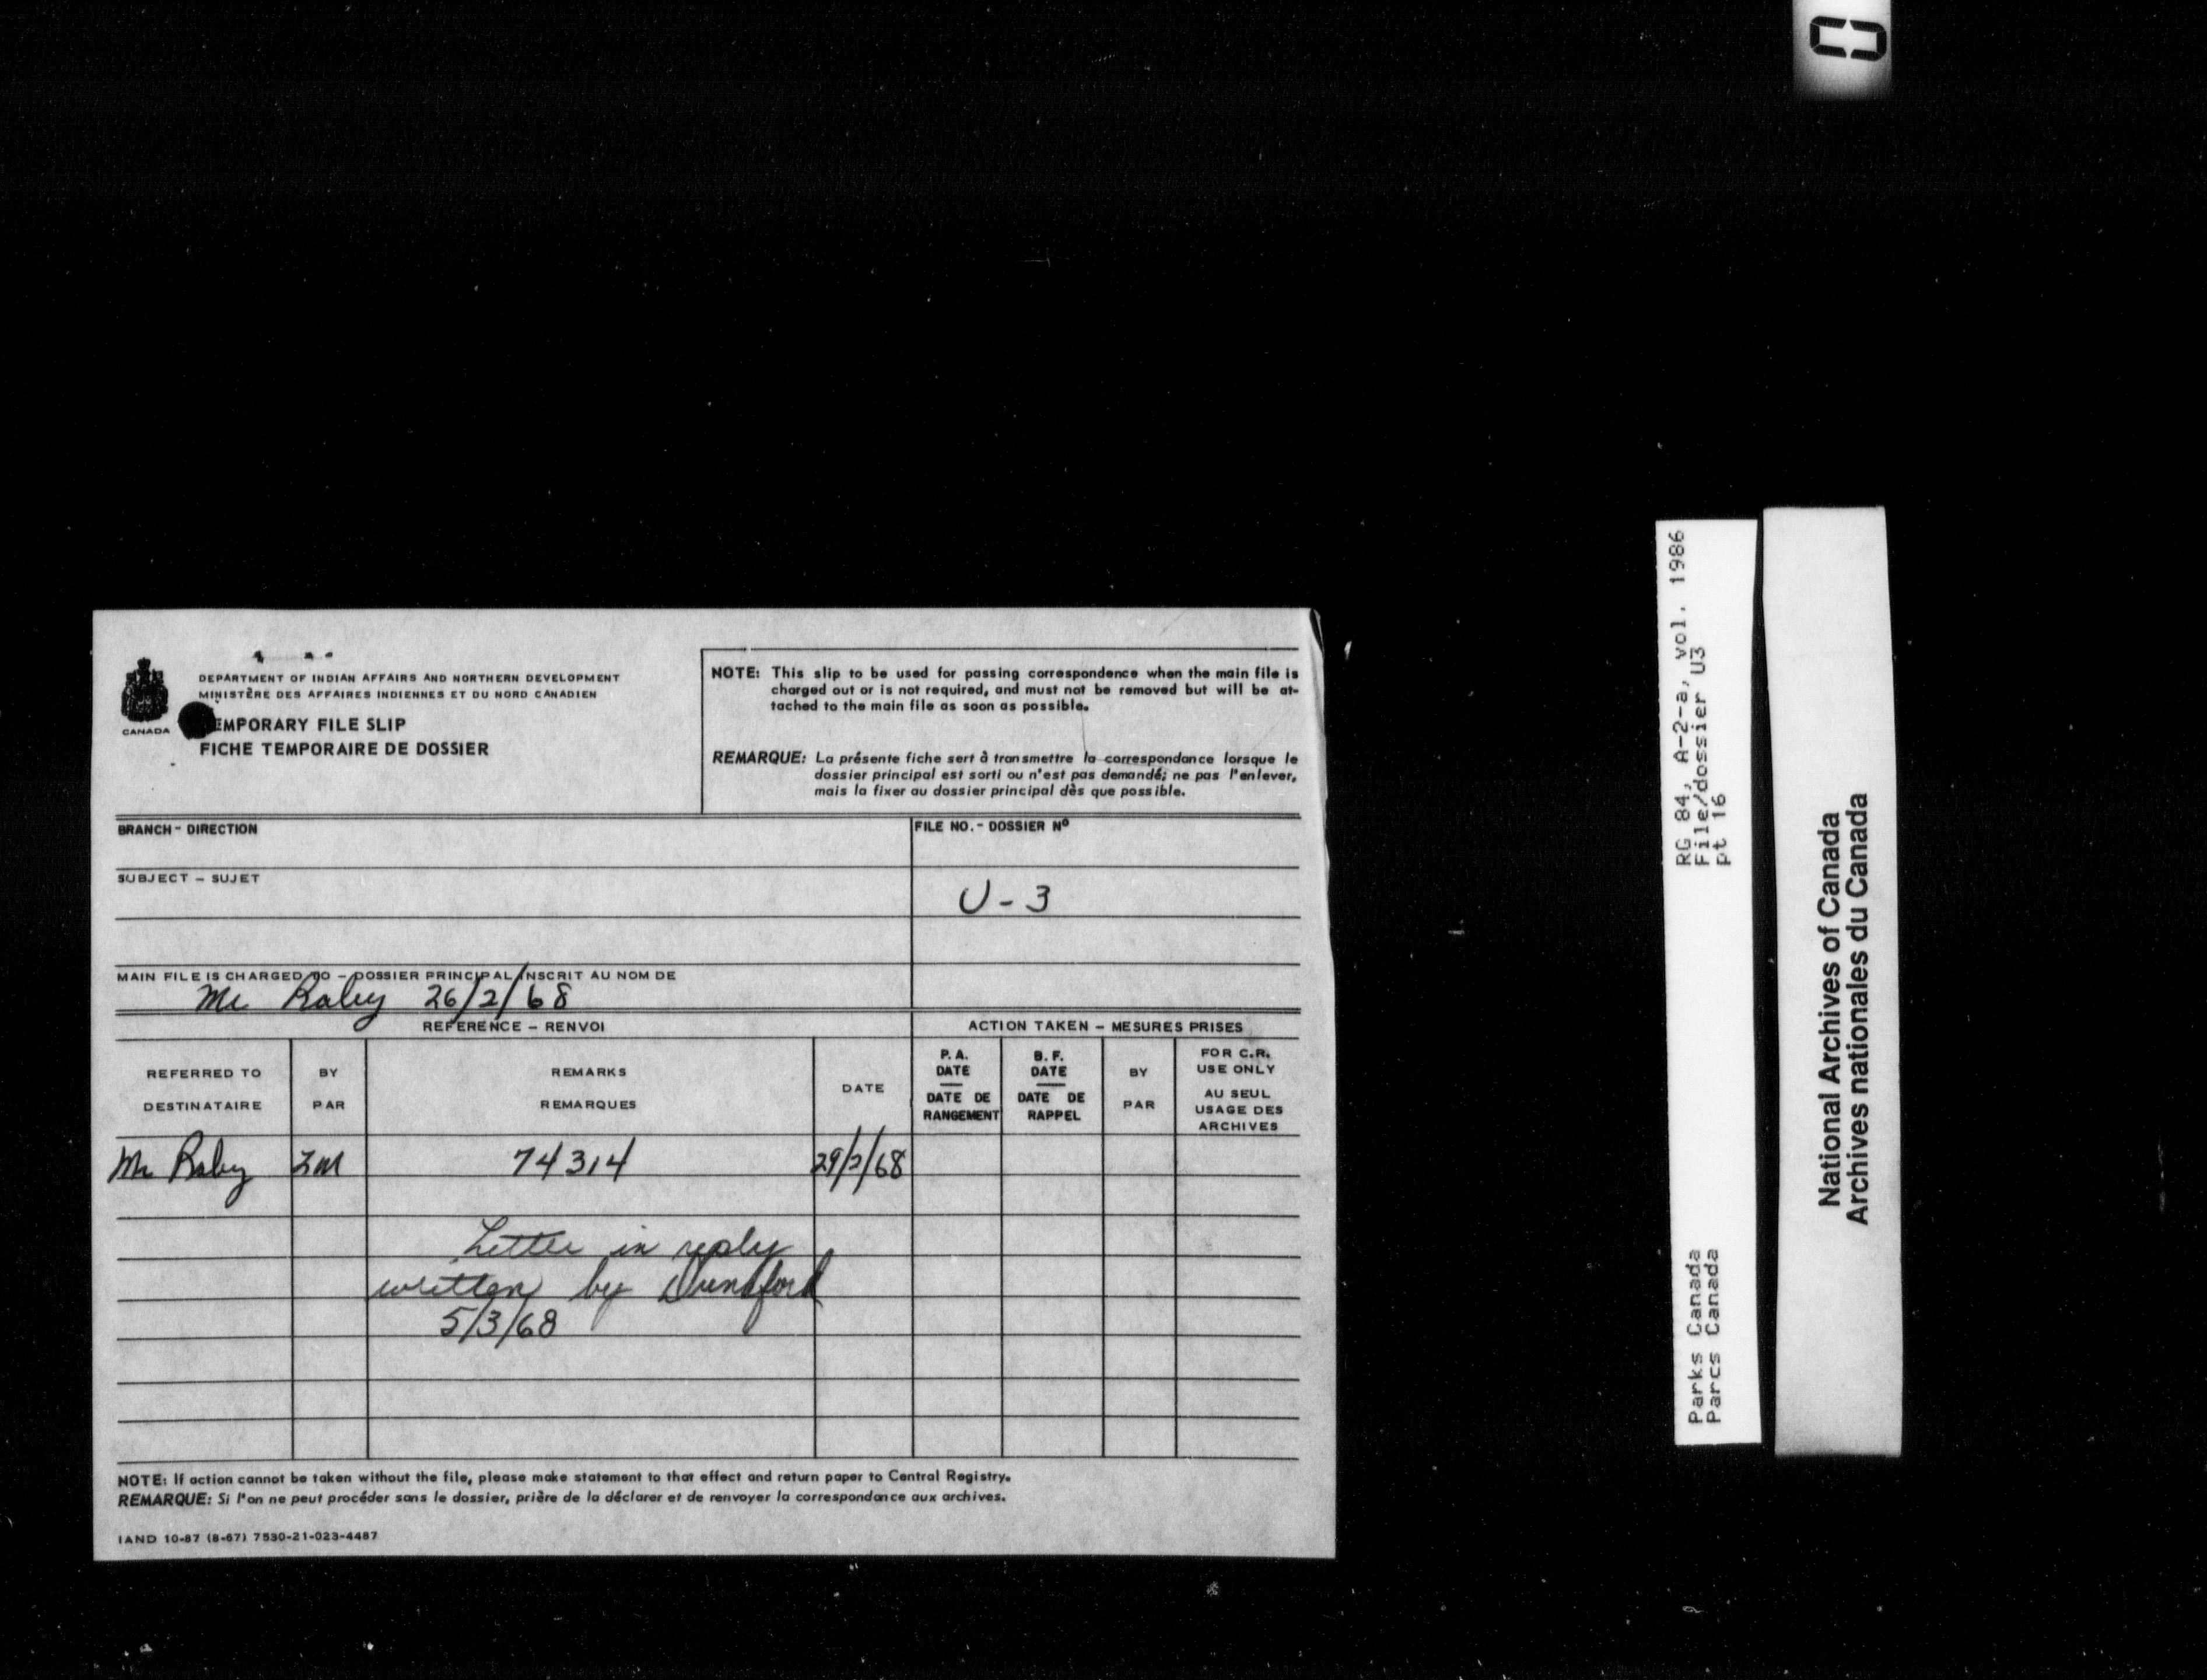 DEPARTMENT OF INDIAN AFFAIRS AND NORTHERN DEVELOPMENT
MINISTÈRE DES AFFAIRES INDIENNES ET DU NORD CANADIEN
CANADA
EMPORARY FILE SLIP
FICHE TEMPORAIRE DE DOSSIER
NOTE: This slip to be used for passing correspondence when the main file is
charged out or is not required, and must not be removed but will be at-
tached to the main file as soon as possible.
REMARQUE: La présente fiche sert à transmettre la correspondance lorsque le
dossier principal est sorti ou n'est pas demandé; ne pas l'enlever,
mais la fixer au dossier principal dès que possible.
BRANCH - DIRECTION
FILE NO. - DOSSIER Nº
SUBJECT - SUJET
U - 3
MAIN FILE IS CHARGED TO - DOSSIER PRINCIPAL INSCRIT AU NOM DE
Mr Raby 26/2/68
REFERENCE - RENVOI
ACTION TAKEN - MESURES PRISES
REFERRED TO
DESTINATAIRE
BY
PAR
REMARKS
REMARQUES
DATE
P. A.
DATE
DATE DE
RANGEMENT
B. F.
DATE
DATE DE
RAPPEL
BY
PAR
FOR C.R.
USE ONLY
AU SEUL
USAGE DES
ARCHIVES
Mr Raby 74314 29/2/68
Letter in reply
written by
5/3/68
NOTE: If action cannot be taken without the file, please make statement to that effect and return paper to Central Registry.
REMARQUE: Si l'on ne peut procéder sans le dossier, prière de la déclarer et de renvoyer la correspondance aux archives.
IAND 10-87 (8-67) 7530-21-023-4487
RG 84, A-2-a, vol. 1986
File/dossier U3
pt 16
Parks Canada
Parcs Canada
National Archives of Canada
Archives nationales du Canada
0